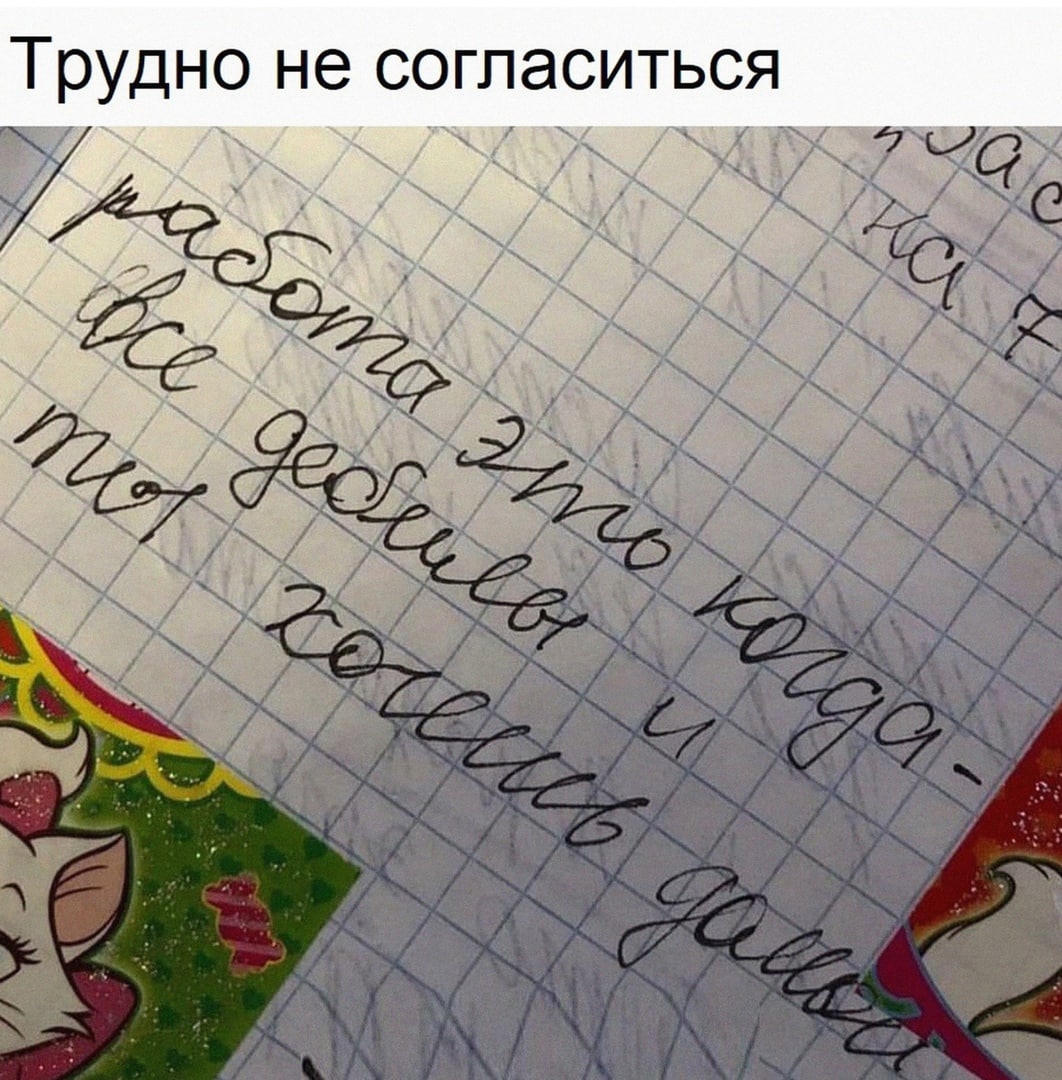 Трудно не согласиться
на 7
работа это когда-
все дебилы и
ты хочешь дамой